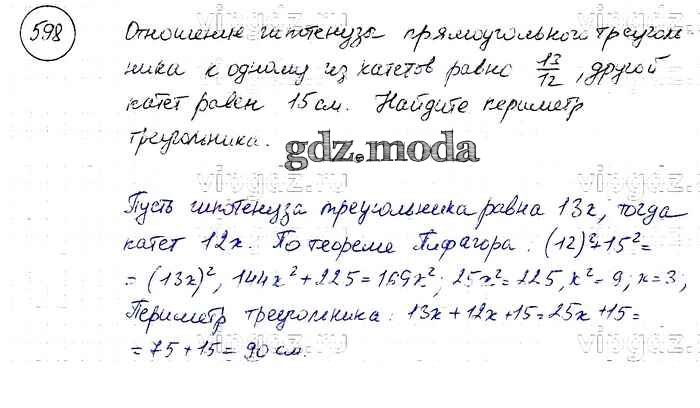 598
Отношение гипотенузы прямоугольного треуголь-
ника к одному из катетов равно 13/12, другой
катет равен 15 см. Найдите периметр
треугольника.
gdz.moda
Пусть гипотенуза треугольника равна 13x, тогда
катет 12x. По теореме Пифагора: (12)²+15²=
= (13x)², 144x²+225=169x²; 25x²=225, x²=9; x=3;
Периметр треугольника: 13x+12x+15=25x+15=
=75+15=90 см.